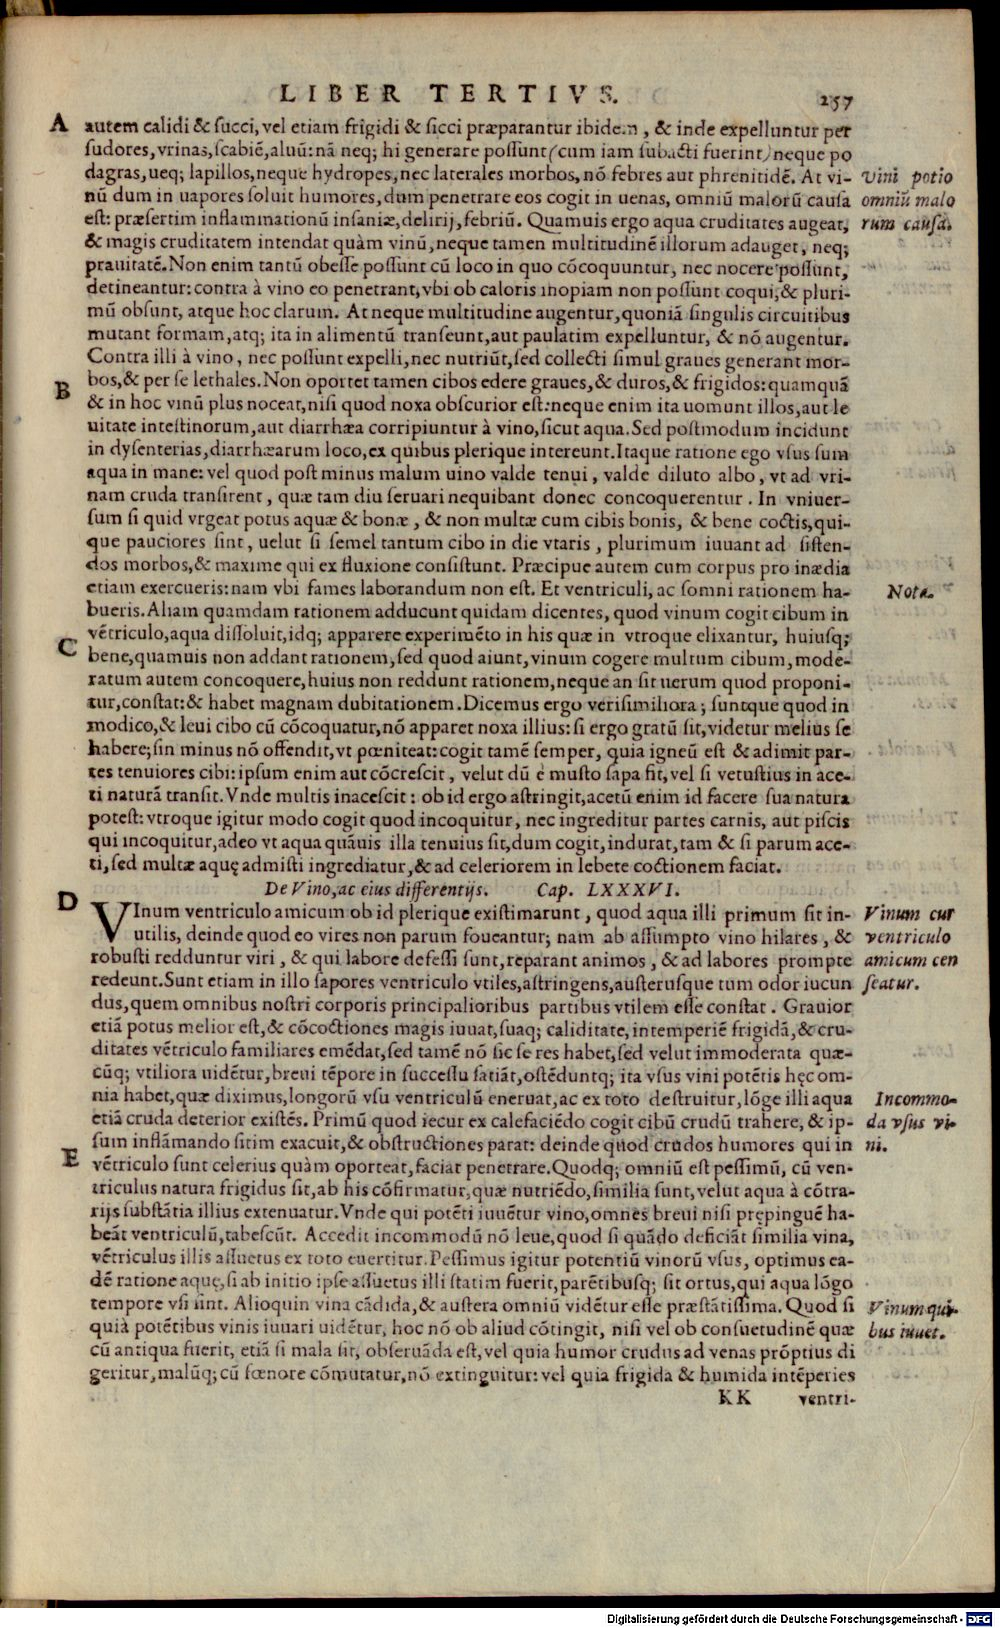 LIBER TERTIVS. 257
A autem calidi & succi, vel etiam frigidi & sicci præparantur ibidem, & inde expelluntur per
sudores, vrinas, scabiẽ, aluũ: nã neq; hi generare possunt (cum iam subacti fuerint) neque po
dagras, ueq; lapillos, neque hydropes, nec laterales morbos, nõ febres aut phrenitidẽ. At vi-
Vini potio
nũ dum in uapores soluit humores, dum penetrare eos cogit in uenas, omniũ malorũ causa
omniũ malo
est: præsertim inflammationũ insaniæ, delirij, febriũ. Quamuis ergo aqua cruditates augeat,
rum causa.
& magis cruditatem intendat quàm vinũ, neque tamen multitudinẽ illorum adauget, neq;
prauitatẽ. Non enim tantũ obesse possunt cũ loco in quo cõcoquuntur, nec nocere possunt,
detineantur: contra à vino eo penetrant, vbi ob caloris inopiam non possunt coqui, & pluri-
mũ obsunt, atque hoc clarum. At neque multitudine augentur, quoniã singulis circuitibus
mutant formam, atq; ita in alimentũ transeunt, aut paulatim expelluntur, & nõ augentur.
Contra illi à vino, nec possunt expelli, nec nutriũt, sed collecti simul graues generant mor-
B bos, & per se lethales. Non oportet tamen cibos edere graues, & duros, & frigidos: quamquã
& in hoc vinũ plus noceat, nisi quod noxa obscurior est: neque enim ita uomunt illos, aut le
uitate intestinorum, aut diarrhæa corripiuntur à vino, sicut aqua. Sed postmodum incidunt
in dysenterias, diarrhæarum loco, ex quibus plerique intereunt. Itaque ratione ego vsus sum
aqua in mane: vel quod post minus malum uino valde tenui, valde diluto albo, vt ad vri-
nam cruda transirent, quæ tam diu seruari nequibant donec concoquerentur. In vniuer-
sum si quid vrgeat potus aquæ & bonæ, & non multæ cum cibis bonis, & bene coctis, qui-
que pauciores sint, uelut si semel tantum cibo in die vtaris, plurimum iuuant ad sisten-
dos morbos, & maxime qui ex fluxione consistunt. Præcipue autem cum corpus pro inædia
etiam exercueris: nam vbi fames laborandum non est. Et ventriculi, ac somni rationem ha-
Nota.
bueris. Aliam quamdam rationem adducunt quidam dicentes, quod vinum cogit cibum in
vẽtriculo, aqua dissoluit, idq; apparere experimẽto in his quæ in vtroque elixantur, huiusq;
C bene, quamuis non addant rationem, sed quod aiunt, vinum cogere multum cibum, mode-
ratum autem concoquere, huius non reddunt rationem, neque an sit uerum quod proponi-
tur, constat: & habet magnam dubitationem. Dicemus ergo verisimiliora; suntque quod in
modico, & leui cibo cũ cõcoquatur, nõ apparet noxa illius: si ergo gratũ sit, videtur melius se
habere; sin minus nõ offendit, vt pœniteat: cogit tamẽ semper, quia igneũ est & adimit par-
tes tenuiores cibi: ipsum enim aut cõcrescit, velut dũ è musto sapa fit, vel si vetustius in ace-
ti naturã transit. Vnde multis inacescit: ob id ergo astringit, acetũ enim id facere sua natura
potest: vtroque igitur modo cogit quod incoquitur, nec ingreditur partes carnis, aut piscis
qui incoquitur, adeo vt aqua quãuis illa tenuius sit, dum cogit, indurat, tam & si parum ace-
ti, sed multæ aquę admisti ingrediatur, & ad celeriorem in lebete coctionem faciat.
De Vino, ac eius differentijs. Cap. LXXXVI.
D VInum ventriculo amicum ob id plerique existimarunt, quod aqua illi primum sit in-
Vinum cur
utilis, deinde quod eo vires non parum foueantur; nam ab assumpto vino hilares, &
ventriculo
robusti redduntur viri, & qui labore defessi sunt, reparant animos, & ad labores prompte
amicum cen
redeunt. Sunt etiam in illo sapores ventriculo vtiles, astringens, austerusque tum odor iucun
seatur.
dus, quem omnibus nostri corporis principalioribus partibus vtilem esse constat. Grauior
etiã potus melior est, & cõcoctiones magis iuuat, suaq; caliditate, intemperiẽ frigidã, & cru-
ditates vẽtriculo familiares emẽdat, sed tamẽ nõ sic se res habet, sed velut immoderata quæ-
cũq; vtiliora uidẽtur, breui tẽpore in successu satiãt, ostẽduntq; ita vsus vini potẽtis hęc om-
nia habet, quæ diximus, longorũ vsu ventriculũ eneruat, ac ex toto destruitur, lõge illi aqua
Incommo-
etiã cruda deterior existẽs. Primũ quod iecur ex calefaciẽdo cogit cibũ crudũ trahere, & ip-
da vsus vi-
sum inflãmando sitim exacuit, & obstructiones parat: deinde quod crudos humores qui in
ni.
E vẽtriculo sunt celerius quàm oporteat, faciat penetrare. Quodq; omniũ est pessimũ, cũ ven-
triculus natura frigidus sit, ab his cõfirmatur, quæ nutriẽdo, similia sunt, velut aqua à cõtra-
rijs substãtia illius extenuatur. Vnde qui potẽti iuuẽtur vino, omnes breui nisi prępinguẽ ha-
beãt ventriculũ, tabescũt. Accedit incommodũ nõ leue, quod si quãdo deficiãt similia vina,
vẽtriculus illis assuetus ex toto euertitur. Pessimus igitur potentiũ vinorũ vsus, optimus ea-
dẽ ratione aquę, si ab initio ipse assuetus illi statim fuerit, parẽtibusq; sit ortus, qui aqua lõgo
tempore vsi sint. Alioquin vina cãdida, & austera omniũ vidẽtur esse præstãtissima. Quod si
Vinum qui-
quià potẽtibus vinis iuuari uidẽtur, hoc nõ ob aliud cõtingit, nisi vel ob consuetudinẽ quæ
bus iuuet.
cũ antiqua fuerit, etiã si mala sit, obseruãda est, vel quia humor crudus ad venas prõptius di
geritur, malũq; cũ fœnore cõmutatur, nõ extinguitur: vel quia frigida & humida intẽperies
KK ventri-
Digitalisierung gefördert durch die Deutsche Forschungsgemeinschaft - DFG